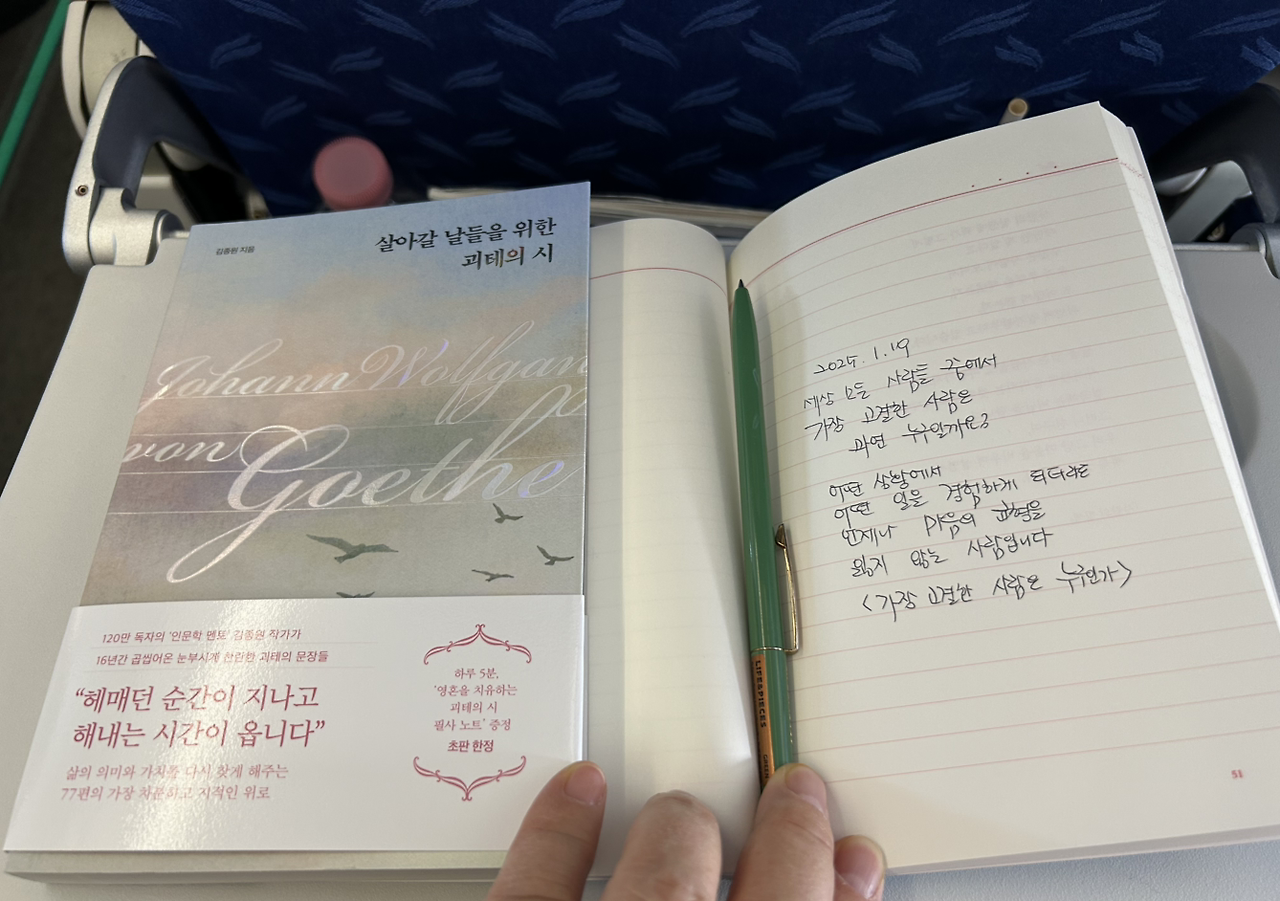 김종원 지음
살아갈 날들을 위한
괴테의 시
Johann Wolfgan
von Goethe
120만 독자의 '인문학 멘토' 김종원 작가가
16년간 곱씹어온 눈부시게 찬란한 괴테의 문장들
“헤매던 순간이 지나고
해내는 시간이 옵니다”
삶의 의미와 가치를 다시 찾게 해주는
77편의 가장 차분하고 지적인 위로
하루 5분,
'영혼을 치유하는
괴테의 시
필사 노트' 증정
초판 한정
2025. 1. 19
세상 모든 사람들 중에서
가장 고결한 사람은
과연 누구일까요?
어떤 상황에서
어떤 일을 경험하게 되더라도
언제나 마음의 균형을
잃지 않는 사람입니다
<가장 고결한 사람은 누구인가>
LIFE&PIECES
51